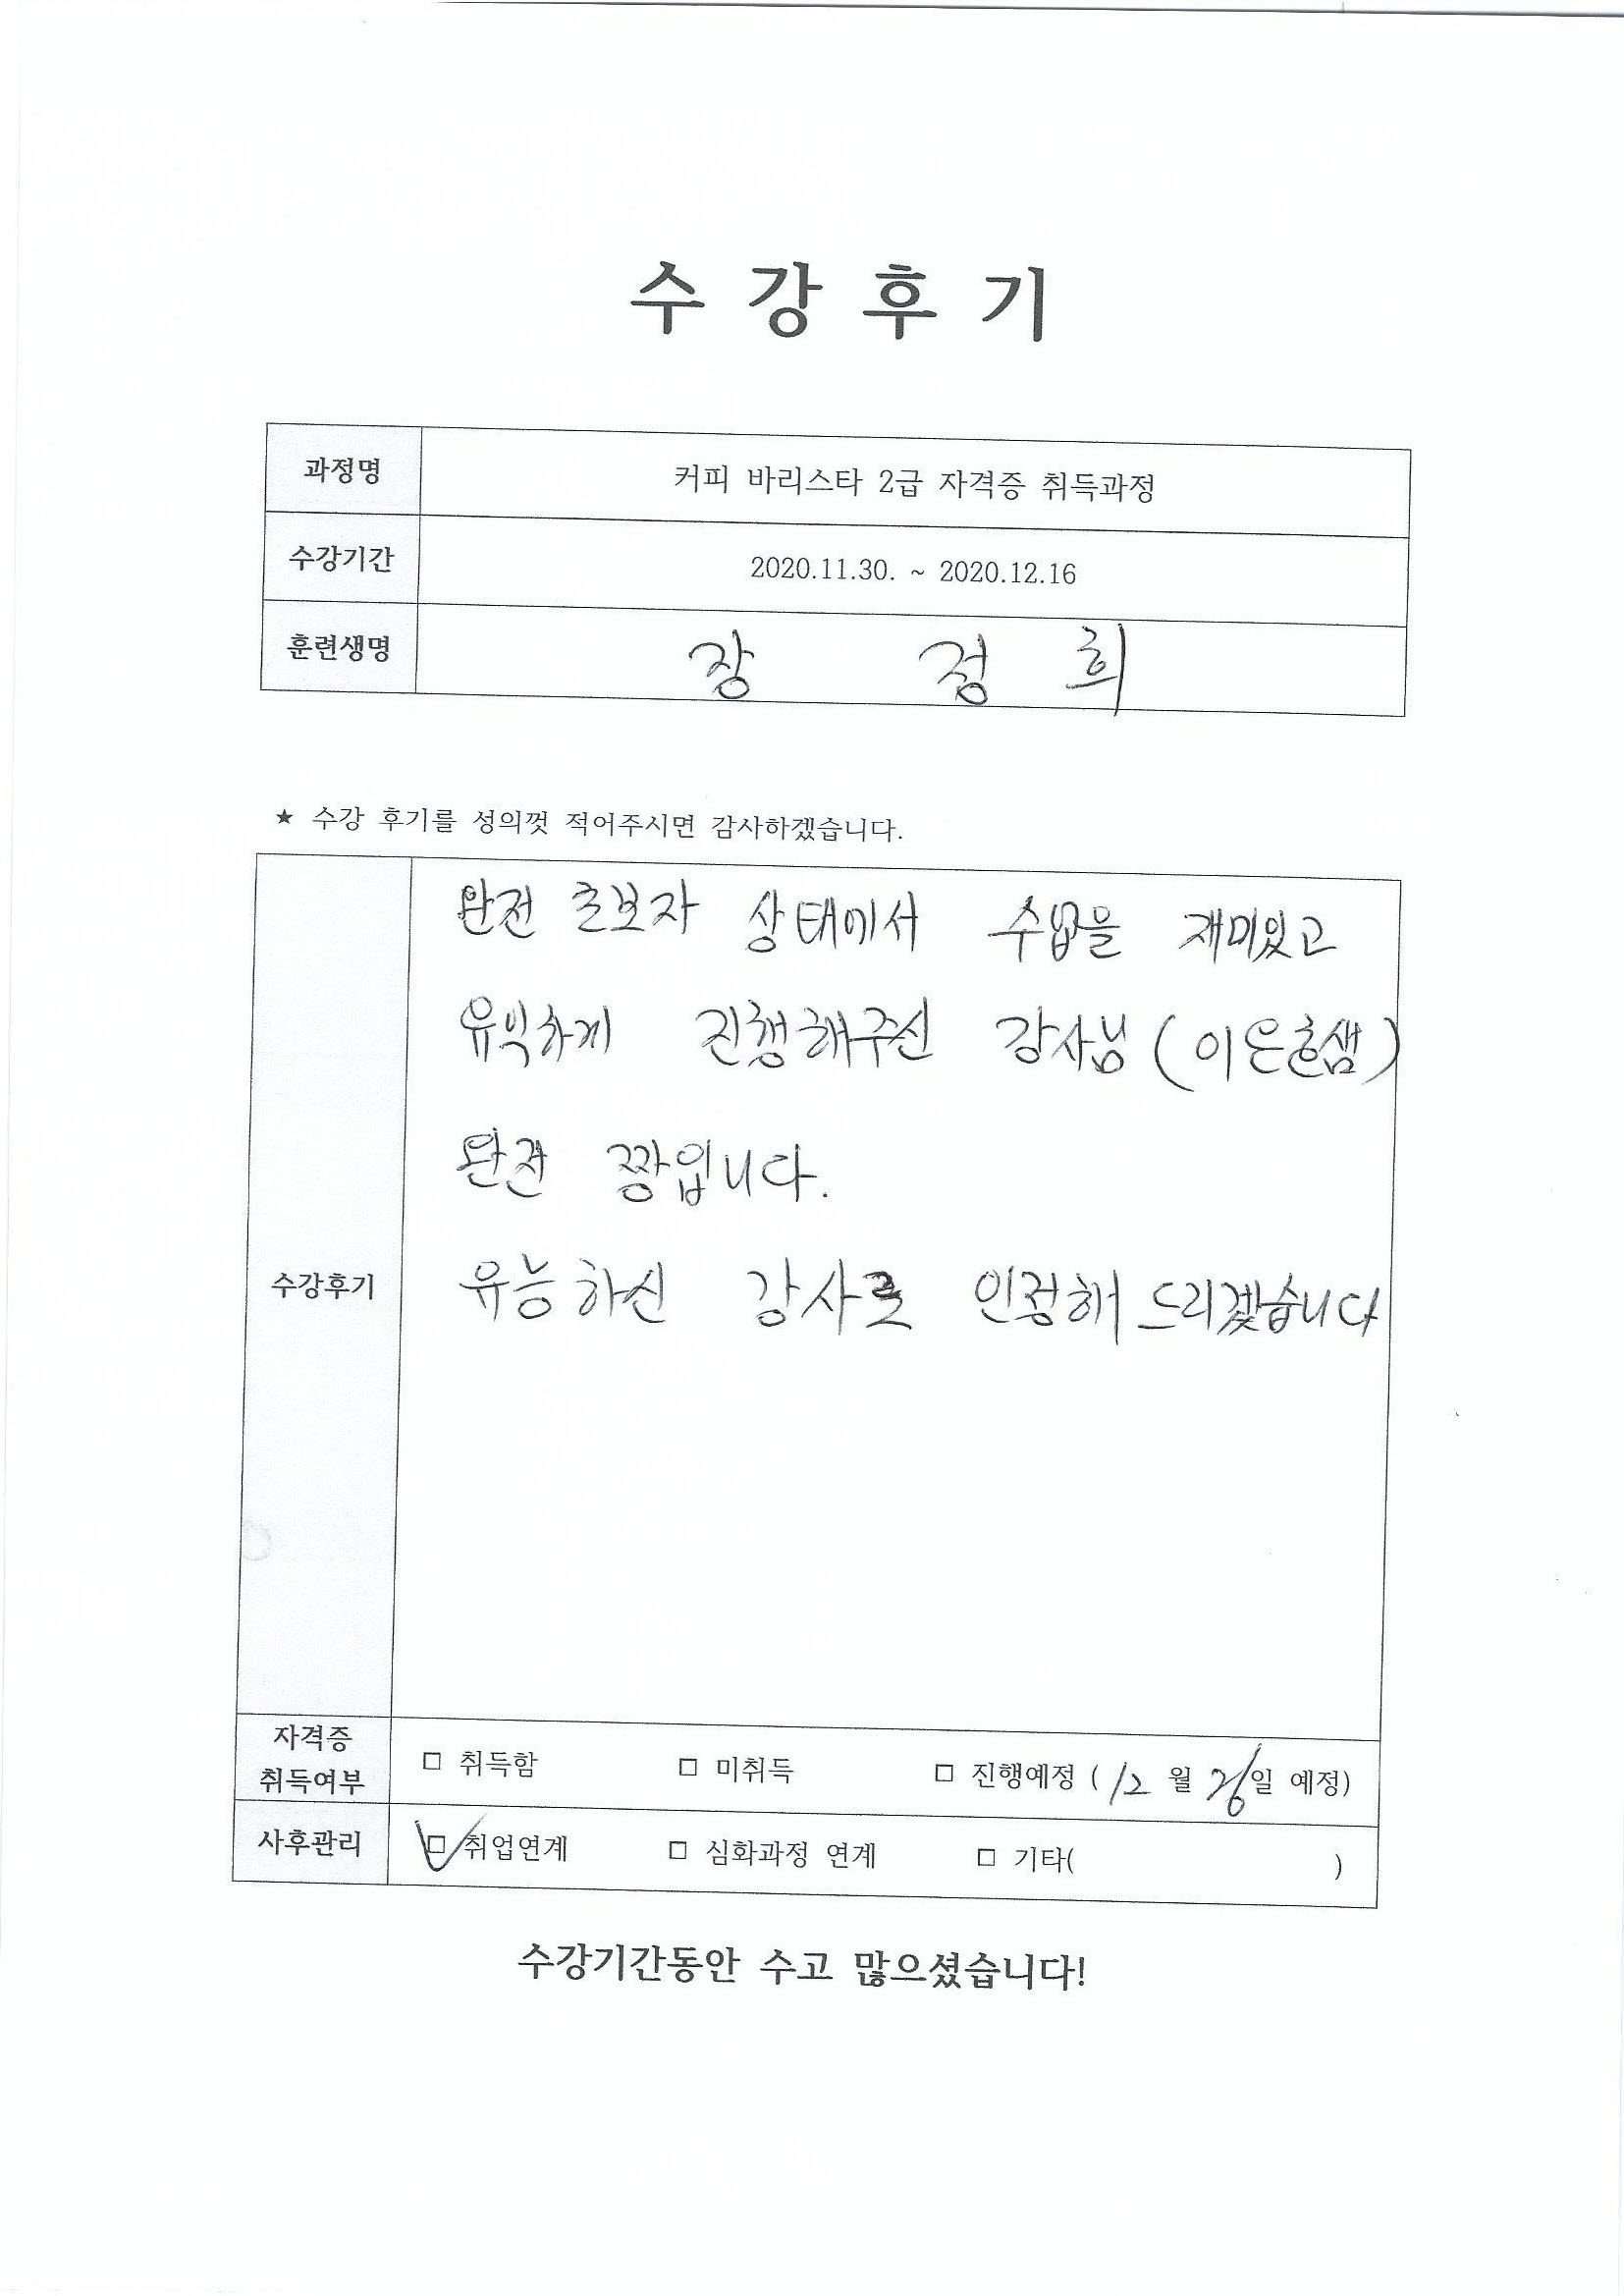 수 강 후 기
과정명 커피 바리스타 2급 자격증 취득과정
수강기간 2020.11.30. ~ 2020.12.16
훈련생명 장 정 희
★ 수강 후기를 성의껏 적어주시면 감사하겠습니다.
완전 초보자 상태에서 수업을 재미있고
유익하게 진행해주신 강사님 (이은호샘)
완전 짱입니다.
수강후기 유능하신 강사로 인정해 드리겠습니다
자격증
취득여부 □ 취득함 □ 미취득 □ 진행예정 ( 12 월 일 예정)
사후관리 □ 취업연계 □ 심화과정 연계 □ 기타( )
수강기간동안 수고 많으셨습니다!